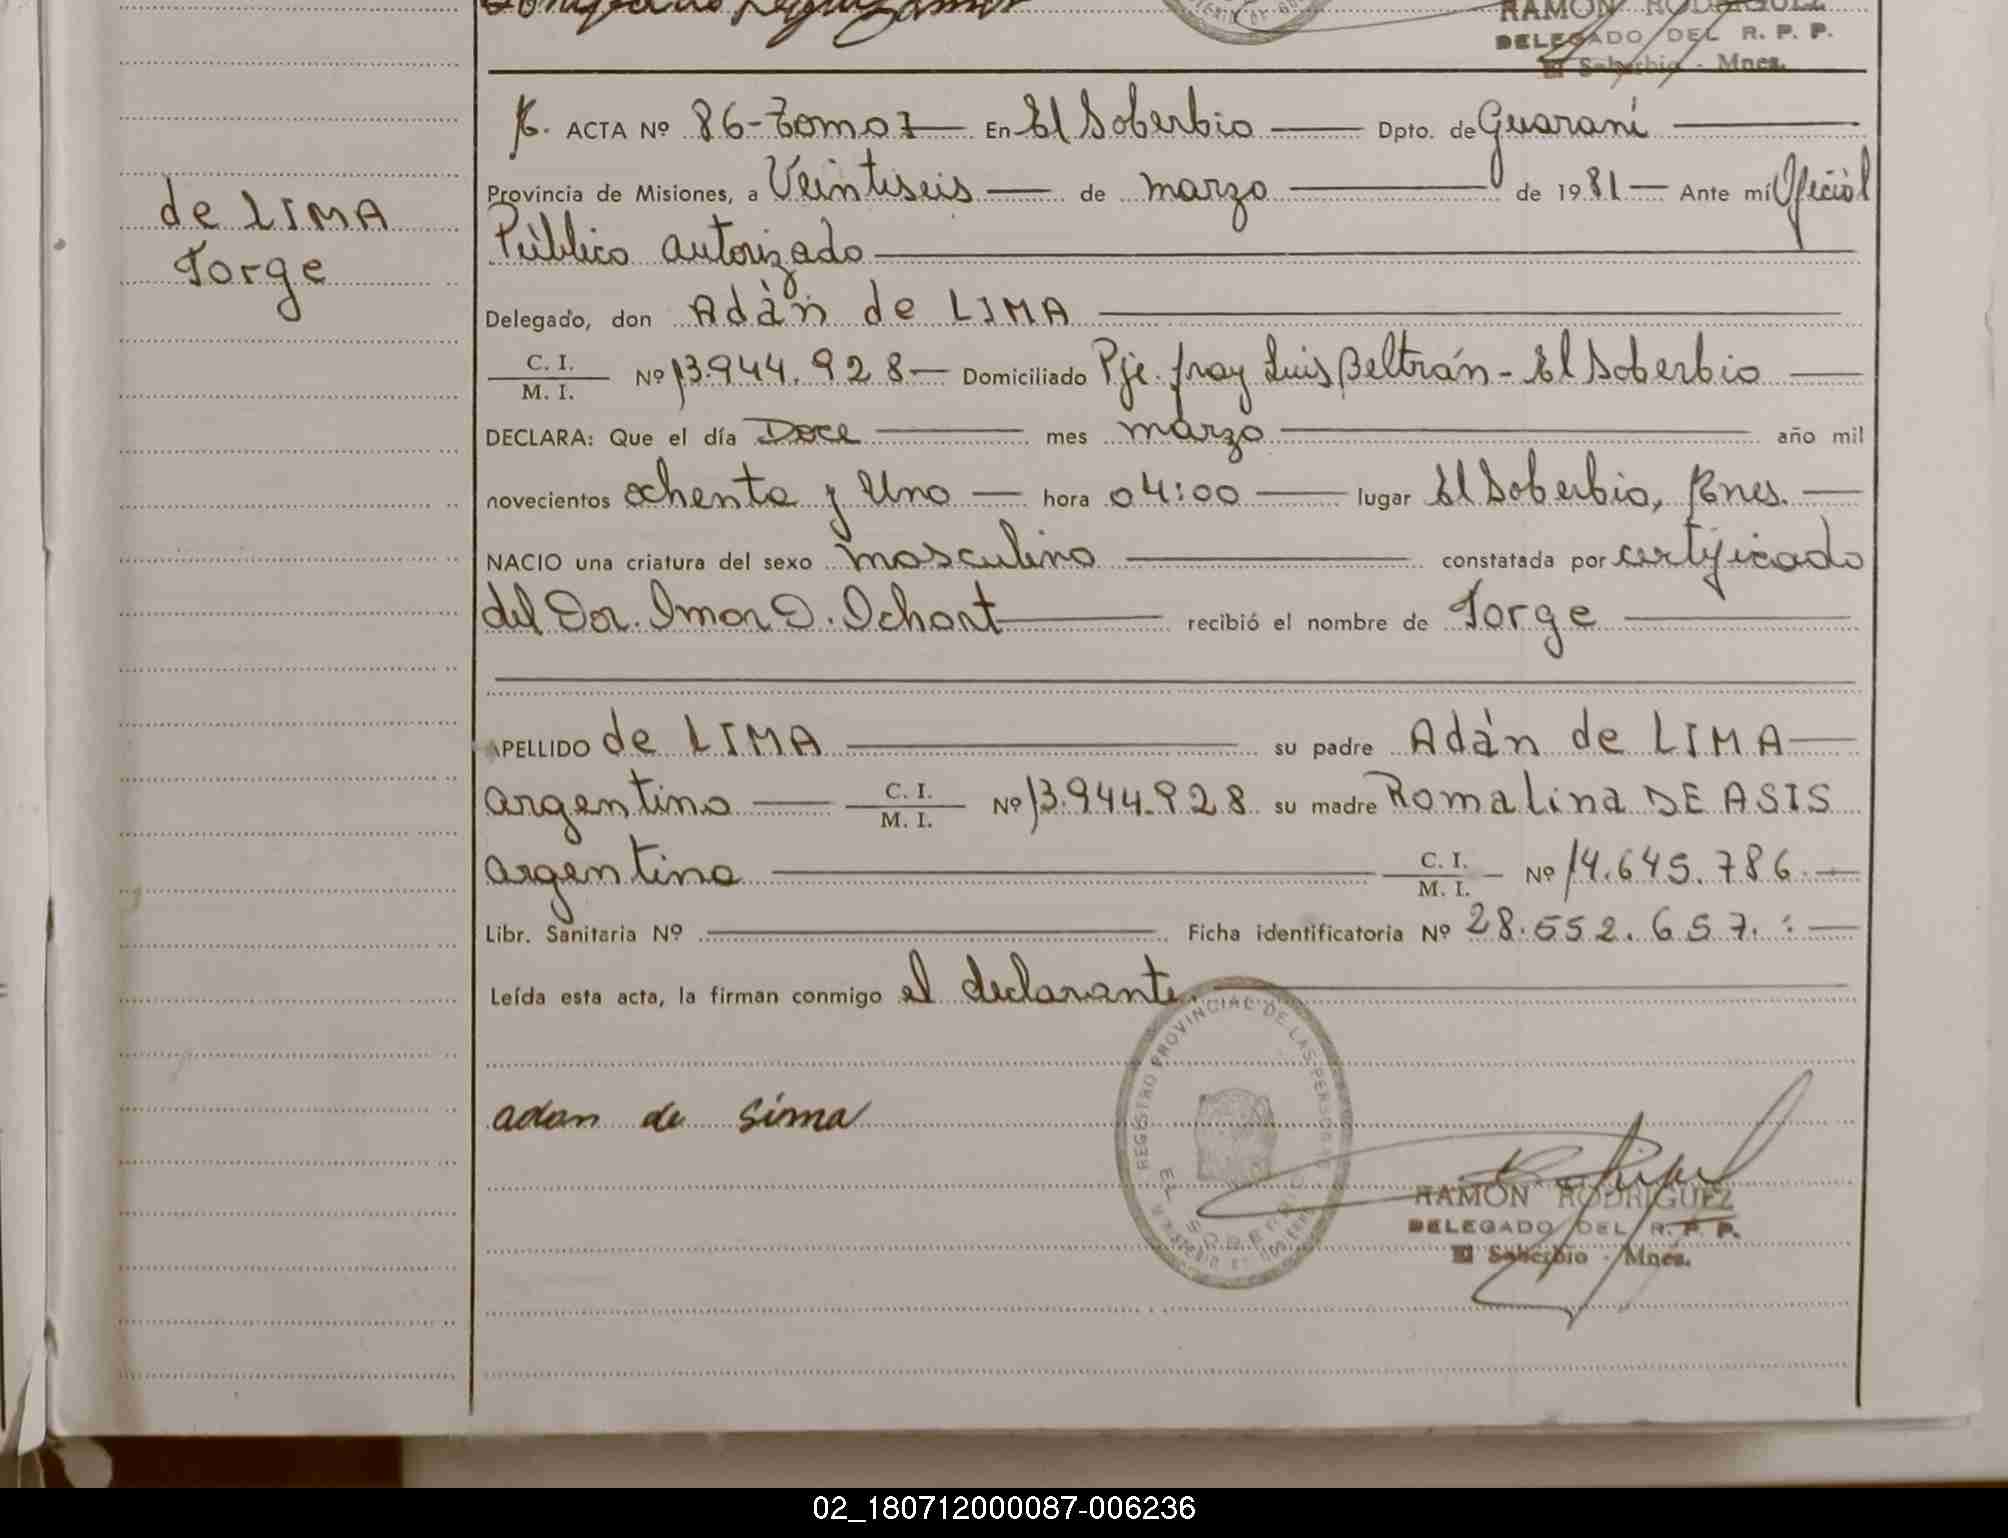 RAMON RODRIGUEZ
DELEGADO DEL R. P. P.
El Soberbio - Mnes.
de LIMA
Jorge
ACTA Nº 86-Tomo I En El Soberbio Dpto. de Guaraní
Provincia de Misiones, a Veintiseis de marzo de 1981 Ante mí Oficial
Público autorizado
Delegado, don Adàn de LIMA
C. I. / M. I. Nº 13.944.928 Domiciliado Pje. fray Luis Beltrán - El Soberbio
DECLARA: Que el día Doce mes marzo año mil
novecientos ochenta y Uno hora 04:00 lugar El Soberbio, Mnes.
NACIO una criatura del sexo masculino constatada por certificado
del Dor. Imar D. Ochart recibió el nombre de Jorge
APELLIDO de LIMA su padre Adàn de LIMA
argentino C. I. / M. I. Nº 13.944.928 su madre Romalina DE ASIS
argentina C. I. / M. I. Nº 14.645.786.
Libr. Sanitaria Nº Ficha identificatoria Nº 28.552.657.
Leída esta acta, la firman conmigo el declarante.
adan de Lima
REGISTRO PROVINCIAL DE LAS PERSONAS
EL SOBERBIO
MINISTERIO DE GOBIERNO
RAMON RODRIGUEZ
DELEGADO DEL R. P. P.
El Soberbio - Mnes.
02_180712000087-006236